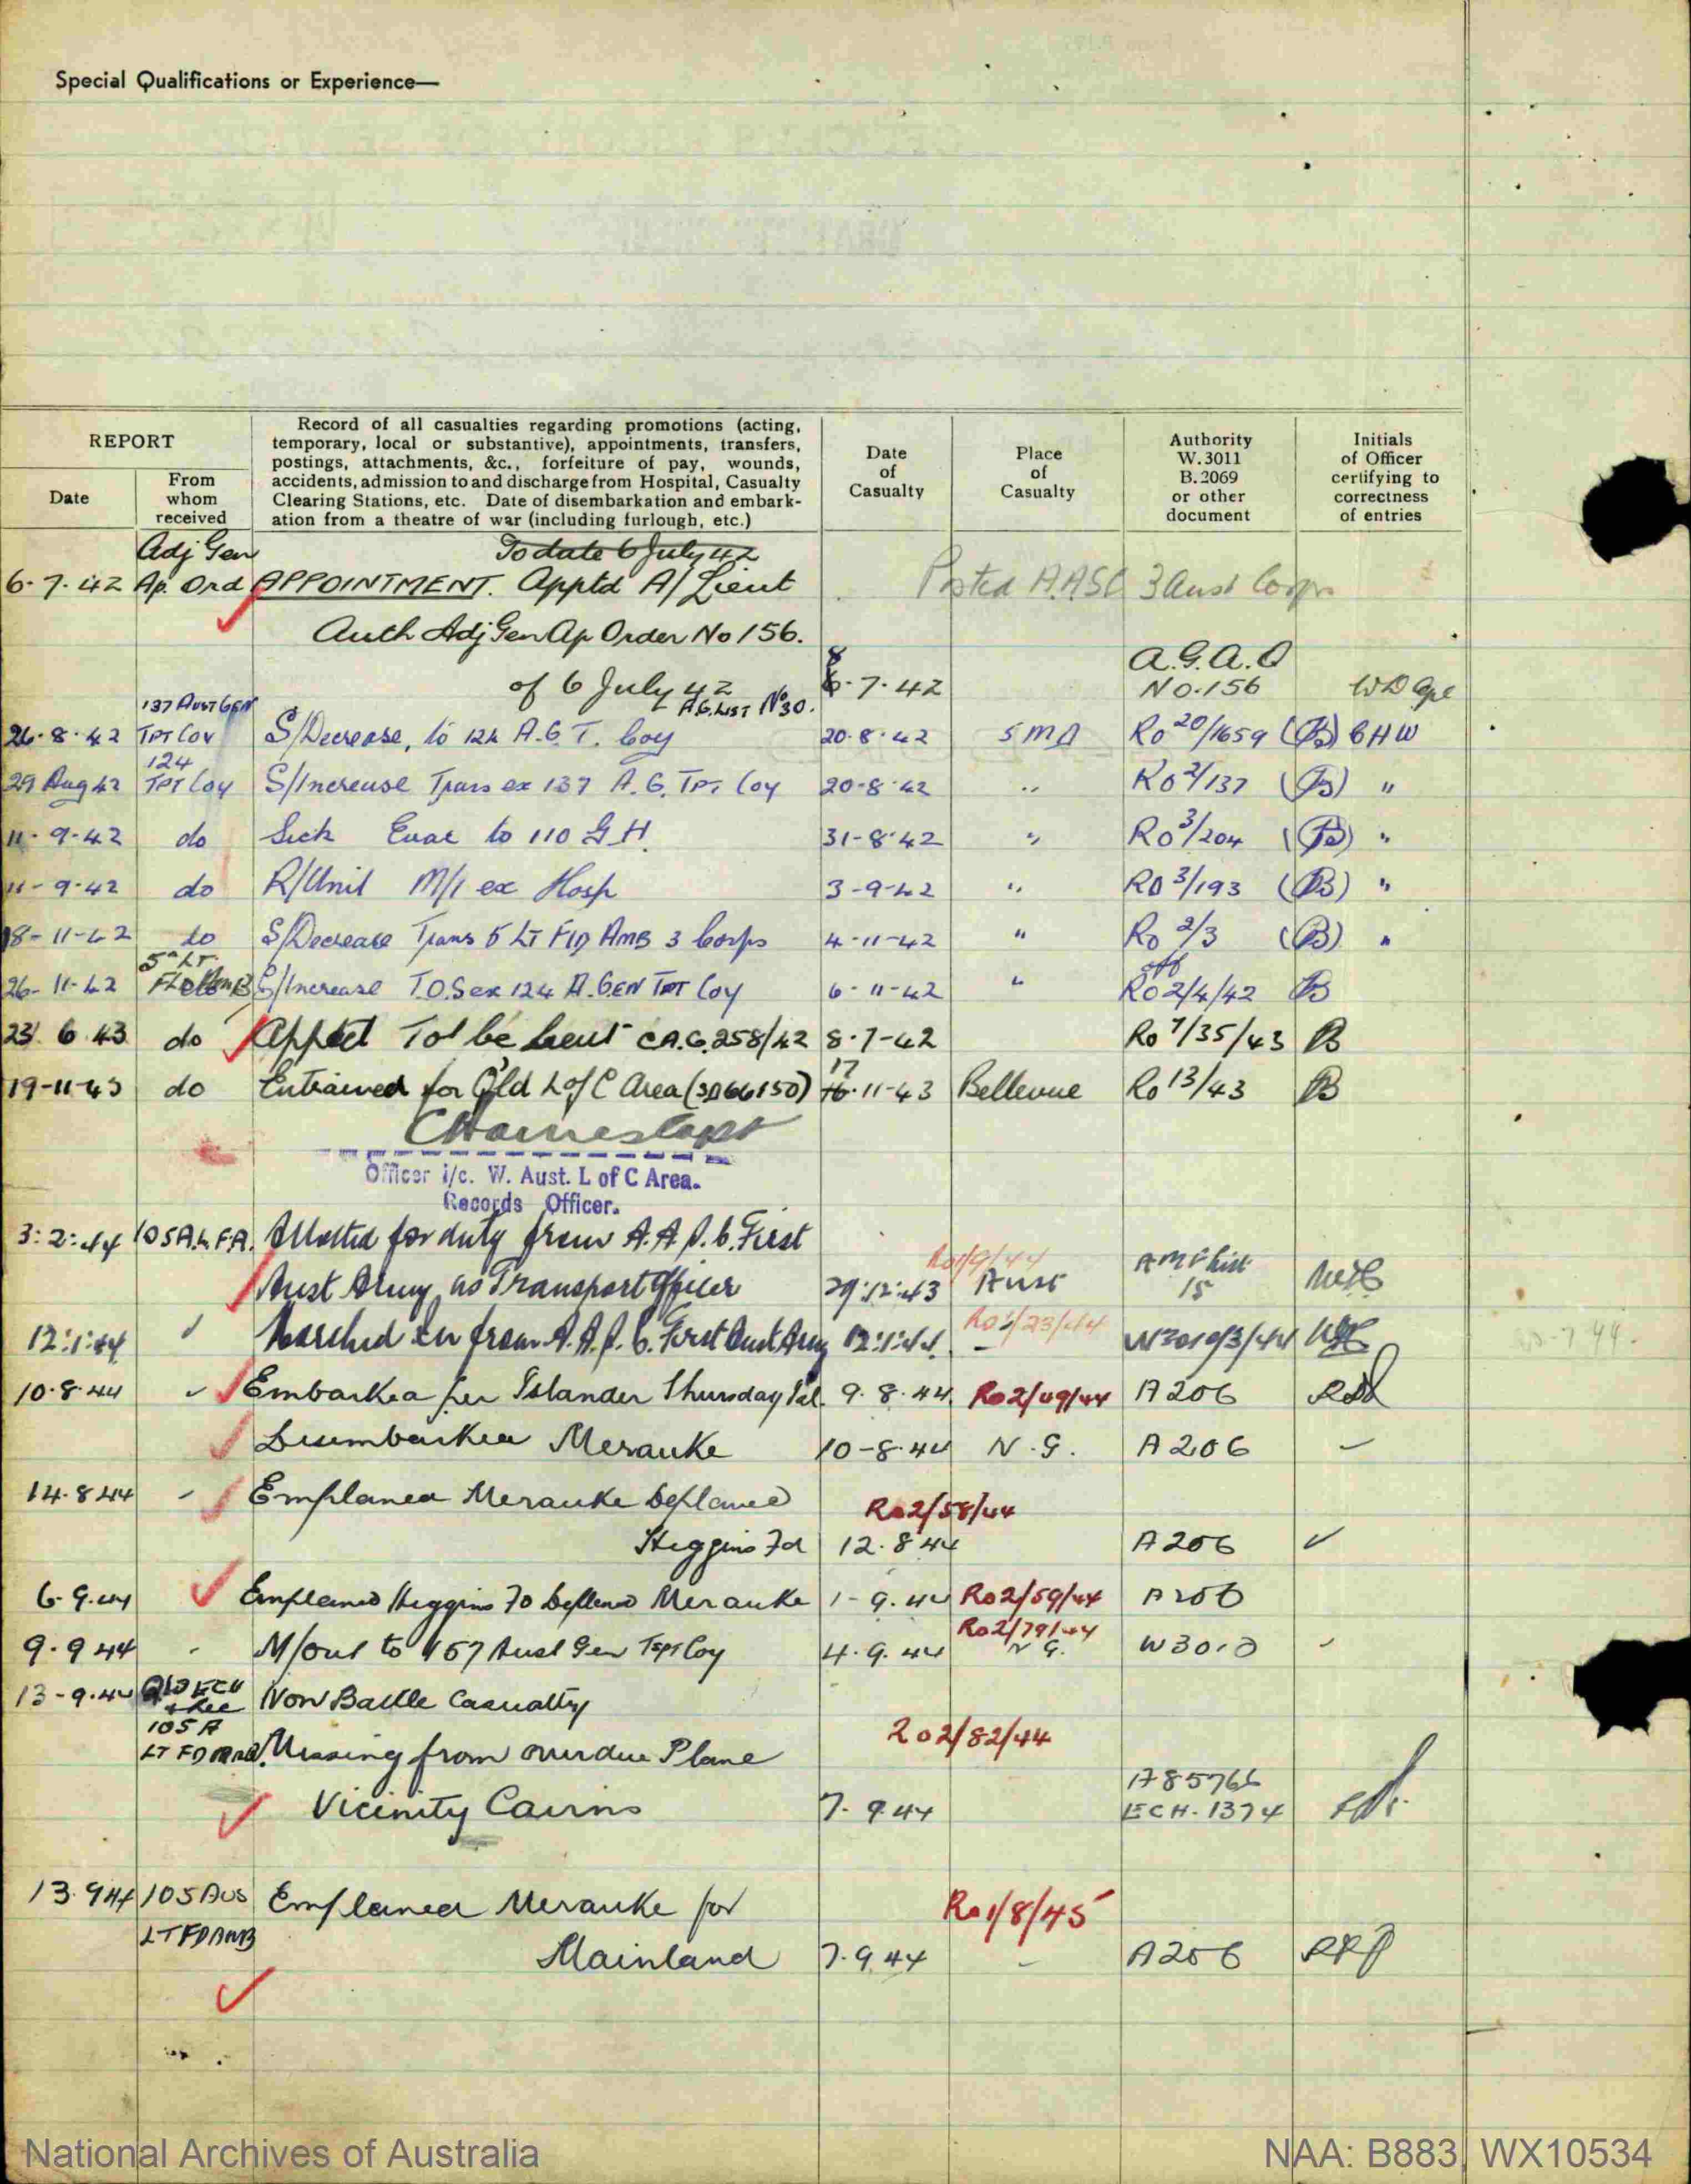 Special Qualifications or Experience—
REPORT
Date
From whom received
Record of all casualties regarding promotions (acting,
temporary, local or substantive), appointments, transfers,
postings, attachments, &c., forfeiture of pay, wounds,
accidents, admission to and discharge from Hospital, Casualty
Clearing Stations, etc. Date of disembarkation and embark-
ation from a theatre of war (including furlough, etc.)
Date of Casualty
Place of Casualty
Authority W.3011 B.2069 or other document
Initials of Officer certifying to correctness of entries
Adj Gen To date 6 July 42
6-7-42 Ap. Ord APPOINTMENT. Apptd A/Lieut Posted A.A.S.C 3 Aust Corps
Auth Adj Gen Ap Order No 156.
of 6 July 42 8-7-42 A.G.A.O No.156
137 AUST GEN A.G. LIST No 30.
26-8-42 TPT Coy S/Decrease, to 124 A.G.T. Coy 20-8-42 Ro 20/1659 (B) CHW
124
29 Aug 42 TPT Coy S/Increase Trans ex 137 A.G. TPT Coy 20-8-42 " Ro 2/137 (B) "
11-9-42 do Sick Evac to 110 G.H. 31-8-42 " Ro 3/204 (B) "
11-9-42 do R/Unit M/I ex Hosp 3-9-42 " RO 3/193 (B) "
18-11-42 do S/Decrease Trans 5 LT FLD AMB 3 Corps 4-11-42 " Ro 2/3 (B) "
5th LT.
26-11-42 FLD AMB S/Increase T.O.S ex 124 A. GEN TPT Coy 6-11-42 " RO 2/4/42 B
23 6 43 do Apptd To be Lieut C.A.G. 258/42 8-7-42 Ro 7/35/43 B
19-11-43 do Entrained for Qld L of C Area (SD66150) 17 16-11-43 Bellevue Ro 13/43 B
Capt
Officer i/c. W. Aust. L of C Area.
Records Officer.
3:2:44 105 A.L.F.A. Allotted for duty from A.A.S.C. First
Ro1/9/44
Aust Army as Transport Officer 29:12:43 Aust AMF List 15
Marched In from A.A.S.C. First Aust Army 12:1:44 -
12:1:44
10-8-44 Embarked per Islander Thursday Isl. 9.8.44. Ro2/49/44 A206
Disembarked Merauke 10-8-44 N.G. A206 -
14.8 44 - Emplaned Merauke Deplaned Ro2/58/44
Higgins Fd 12.8 44 A206
6-9.44 Emplaned Higgins Fd Deplaned Merauke 1-9.44 Ro2/59/44 A206
Ro2/79/44
9.9 44 - M/out to 167 Aust Gen Tspt Coy 4.9.44 N G. W3010
13-9-44 QLD ECH & Rec Non Battle Casualty
105 A
LT FD AMB. Missing from overdue Plane Ro2/82/44
Vicinity Cairns 7.9.44 A85766 ECH-1374
13.9 44 105 Aus Emplaned Merauke for Ro 1/8/45
LT FD AMB Mainland 7.9.44 - A206
National Archives of Australia
NAA: B883, WX10534